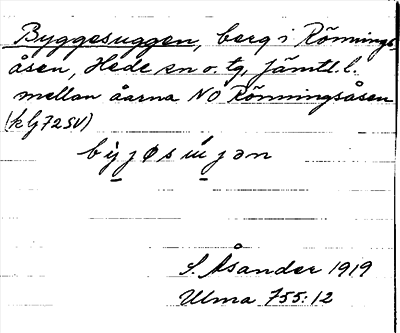 Byggesuggen, berg i Rönnings-
åsen, Hede sn o. tg, Jämtl. l.
mellan åarna NO Rönningsåsen
(klj 72 SV)
S. Åsander 1919
Ulma 755:12